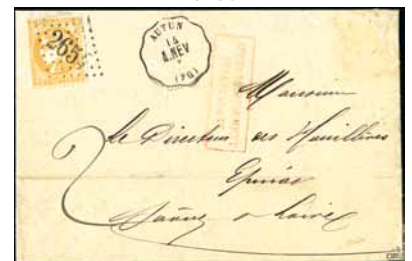 265
AUTUN
14
A.NEV
(70)
Monsieur
le Directeur des Houillères
Epinac
Saône & Loire